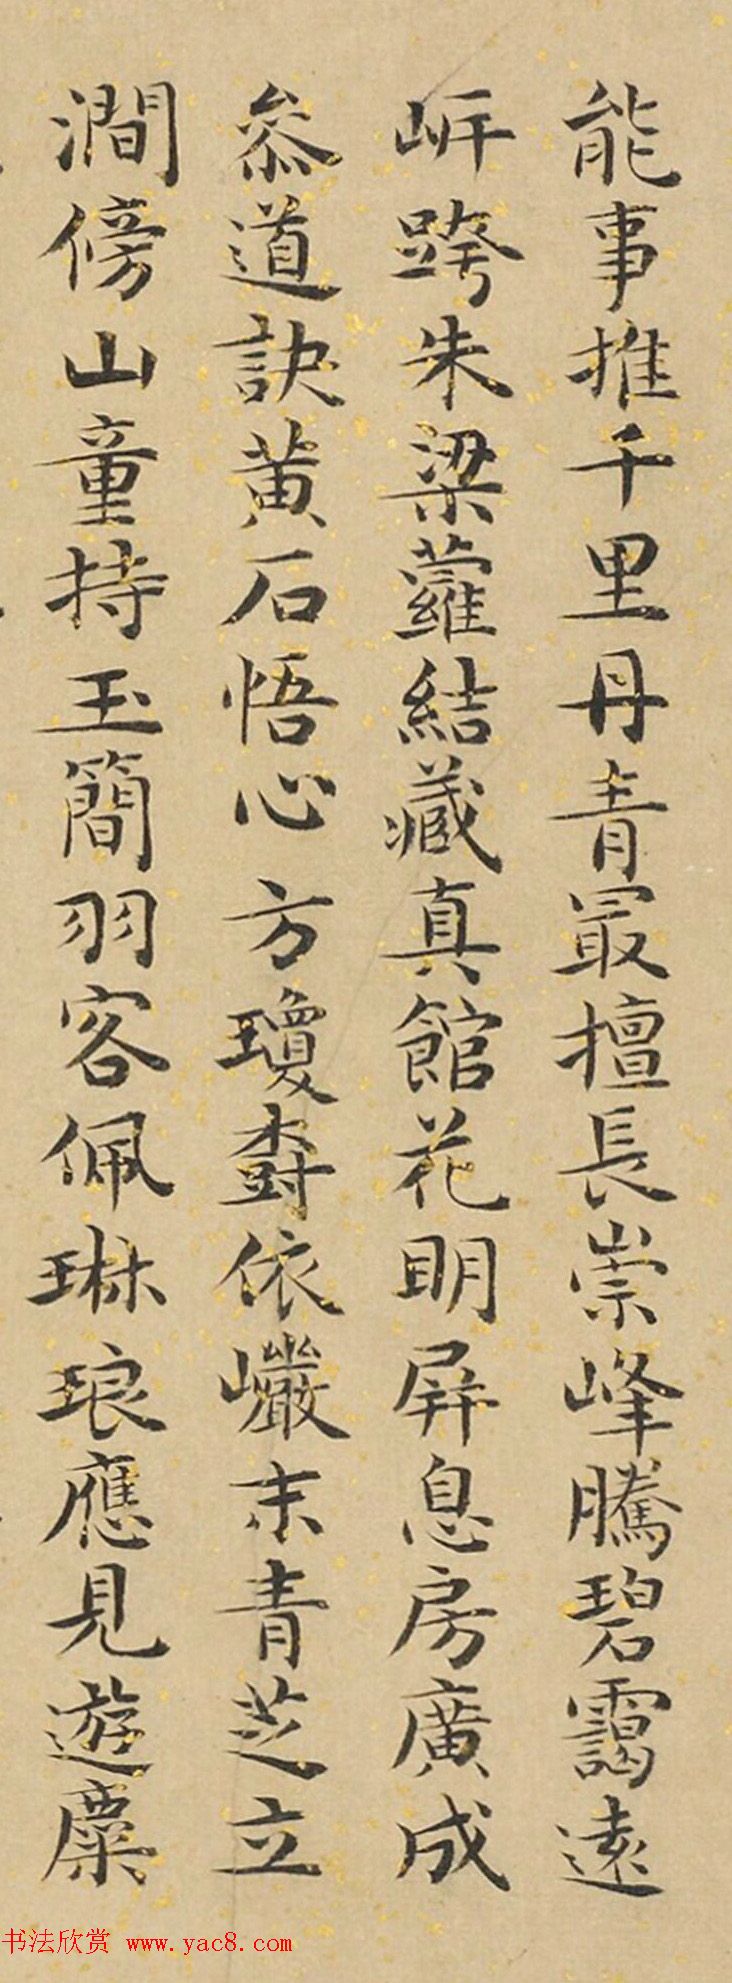 能事推千里丹青最擅長崇峰騰碧靄遠
岍跨朱梁蘿結藏真館花明屏息房廣成
叅道訣黄石悟心方瓊樹依巗末青芝立
澗傍山童持玉簡羽客佩琳琅應見遊麋
书法欣赏 www.yac8.com